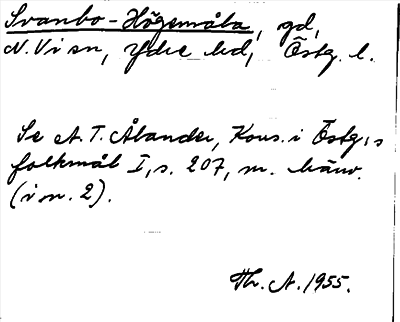 Svanbo-Högemåla, gd,
N. Vi sn, Ydre hd, Östg. l.
Se A. T. Ålander, Kons. i Östg:s
folkmål I, s. 207, m. hänv.
(i n. 2).
Th. A. 1955.